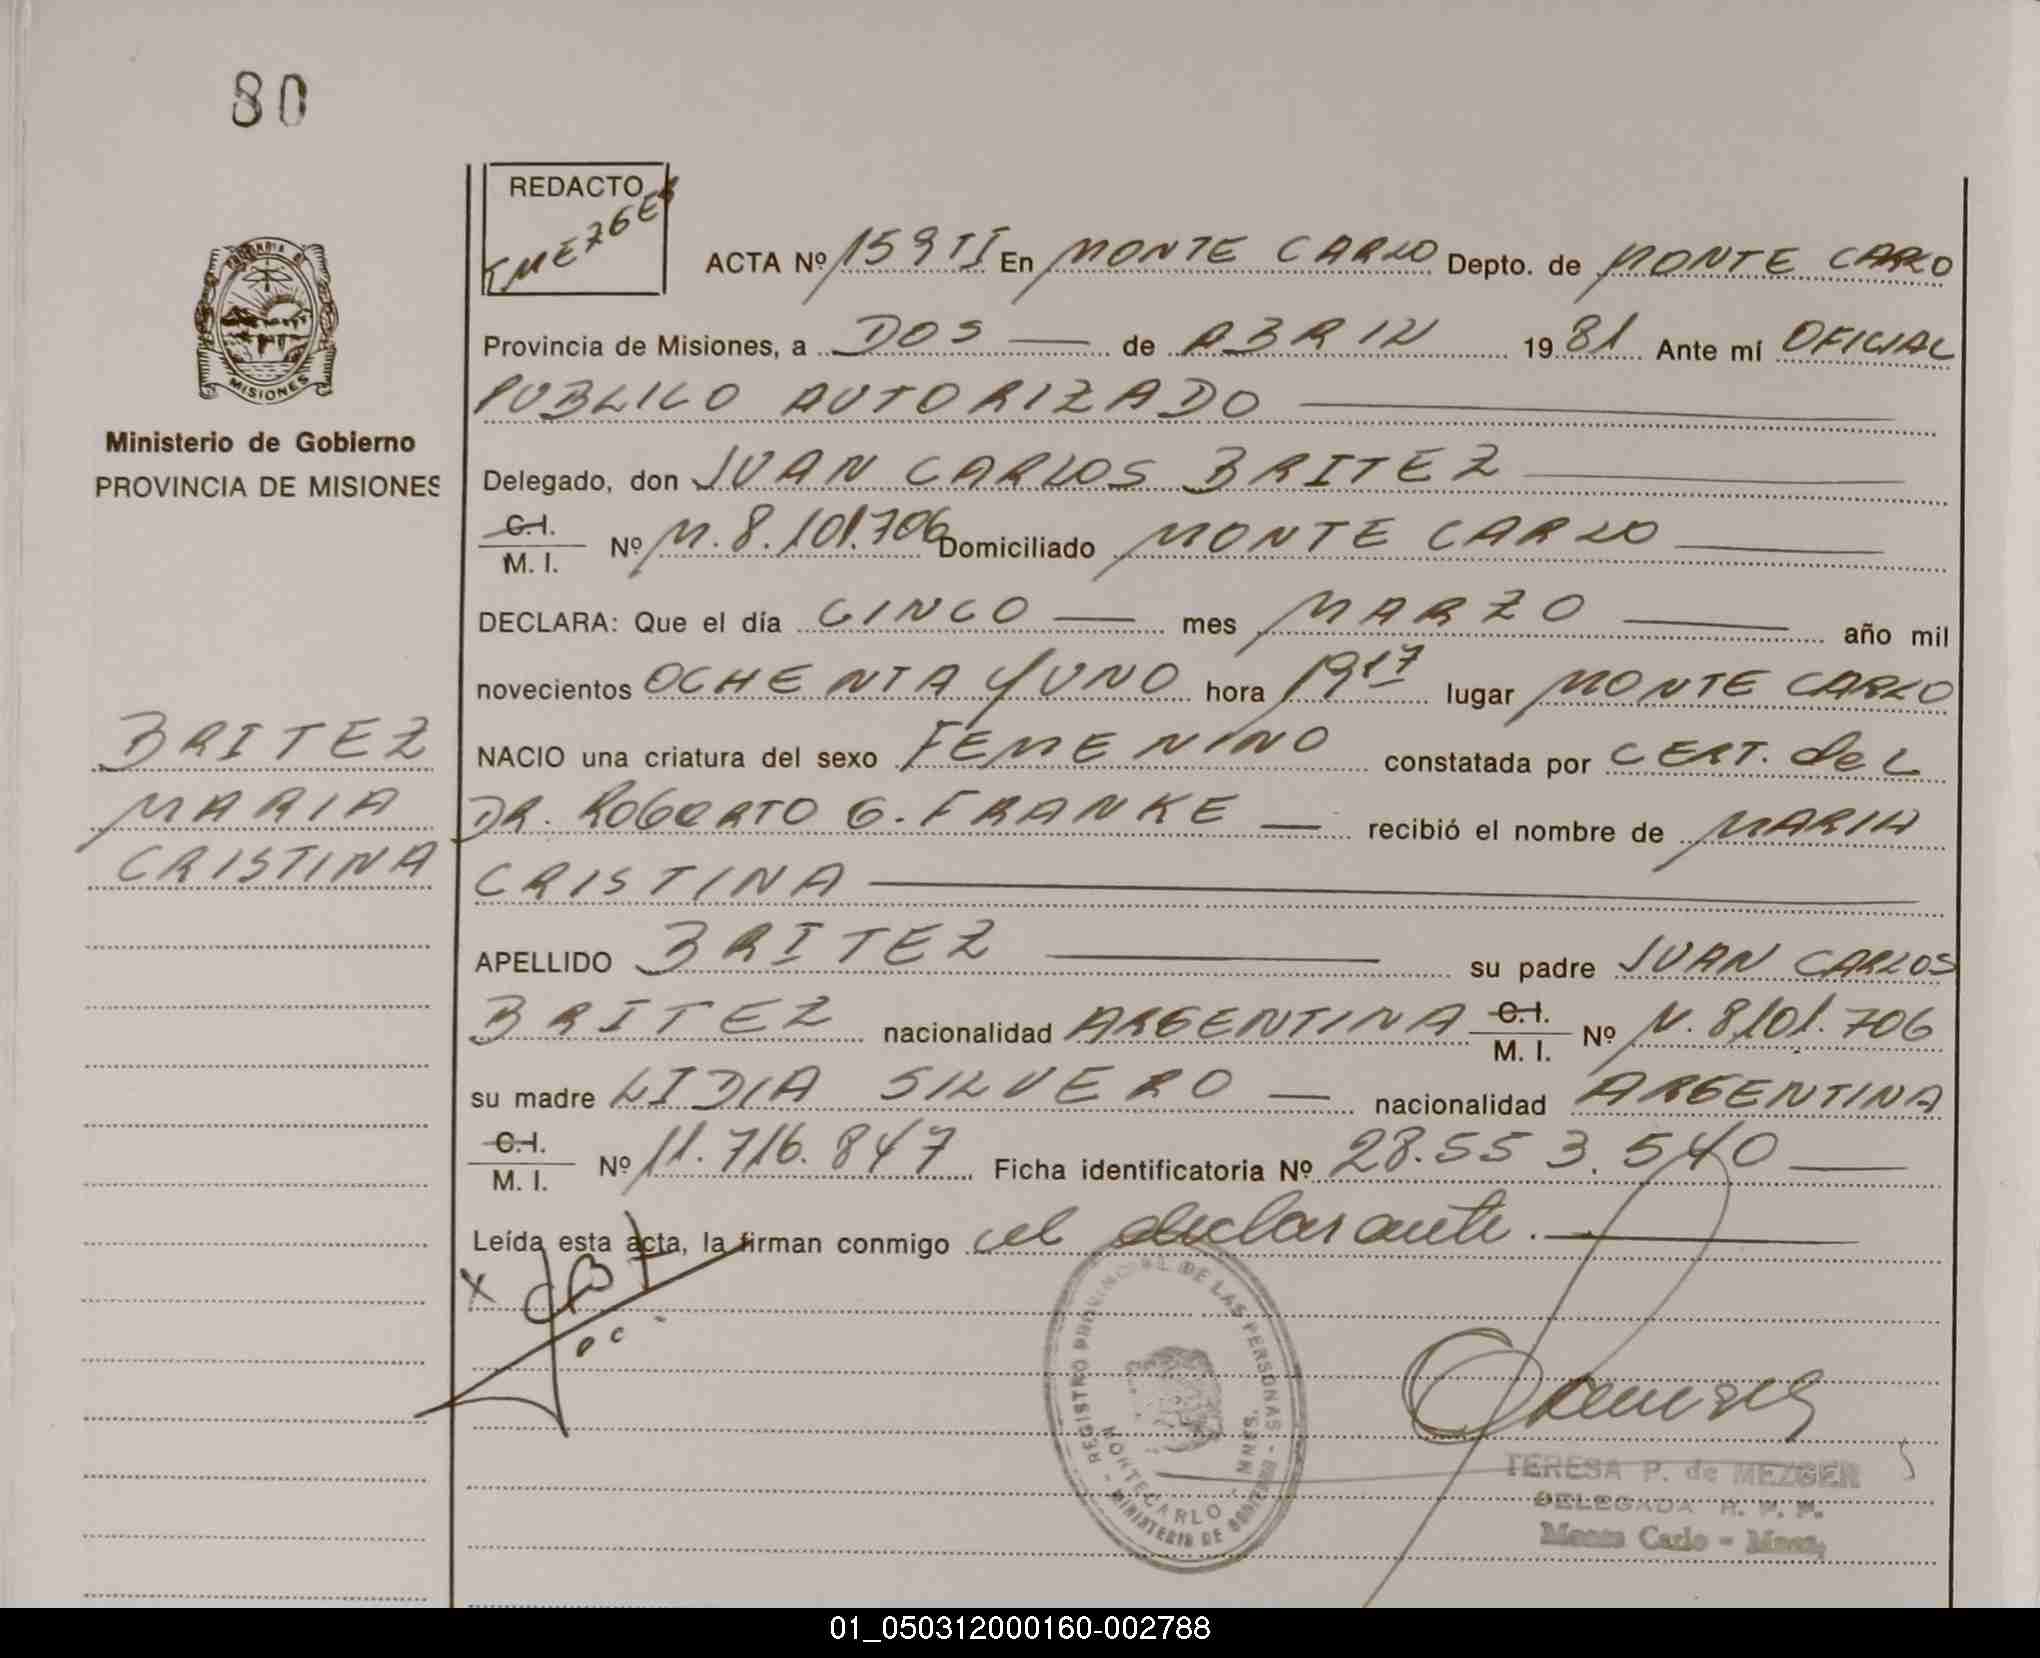 80
REDACTO
TMEZGER
ACTA Nº 159 TI En MONTE CARLO Depto. de MONTE CARLO
Provincia de Misiones, a DOS de ABRIL 1981 Ante mí OFICIAL
PUBLICO AUTORIZADO
MISIONES
Ministerio de Gobierno
PROVINCIA DE MISIONES
Delegado, don JUAN CARLOS BRITEZ
C.I.
M. I. Nº M. 8.101.706 Domiciliado MONTE CARLO
DECLARA: Que el día CINCO mes MARZO año mil
novecientos OCHENTA Y UNO hora 19 17 lugar MONTE CARLO
BRITEZ
MARIA
CRISTINA
NACIO una criatura del sexo FEMENINO constatada por CERT. del
DR. ROBERTO G. FRANKE recibió el nombre de MARIA
CRISTINA
APELLIDO BRITEZ su padre JUAN CARLOS
BRITEZ nacionalidad ARGENTINA C.I. M. I. Nº M. 8.101.706
su madre LIDIA SILVERO nacionalidad ARGENTINA
C.I.
M. I. Nº 11.716.847 Ficha identificatoria Nº 28.553.540
Leída esta acta, la firman conmigo el declarante.
X
REGISTRO PROVINCIAL DE LAS PERSONAS - MINISTERIO DE GOBIERNO -
MONTECARLO - MNES.
TERESA P. de MEZGER
DELEGADA R. P. P.
Monte Carlo - Mnes.
01_050312000160-002788